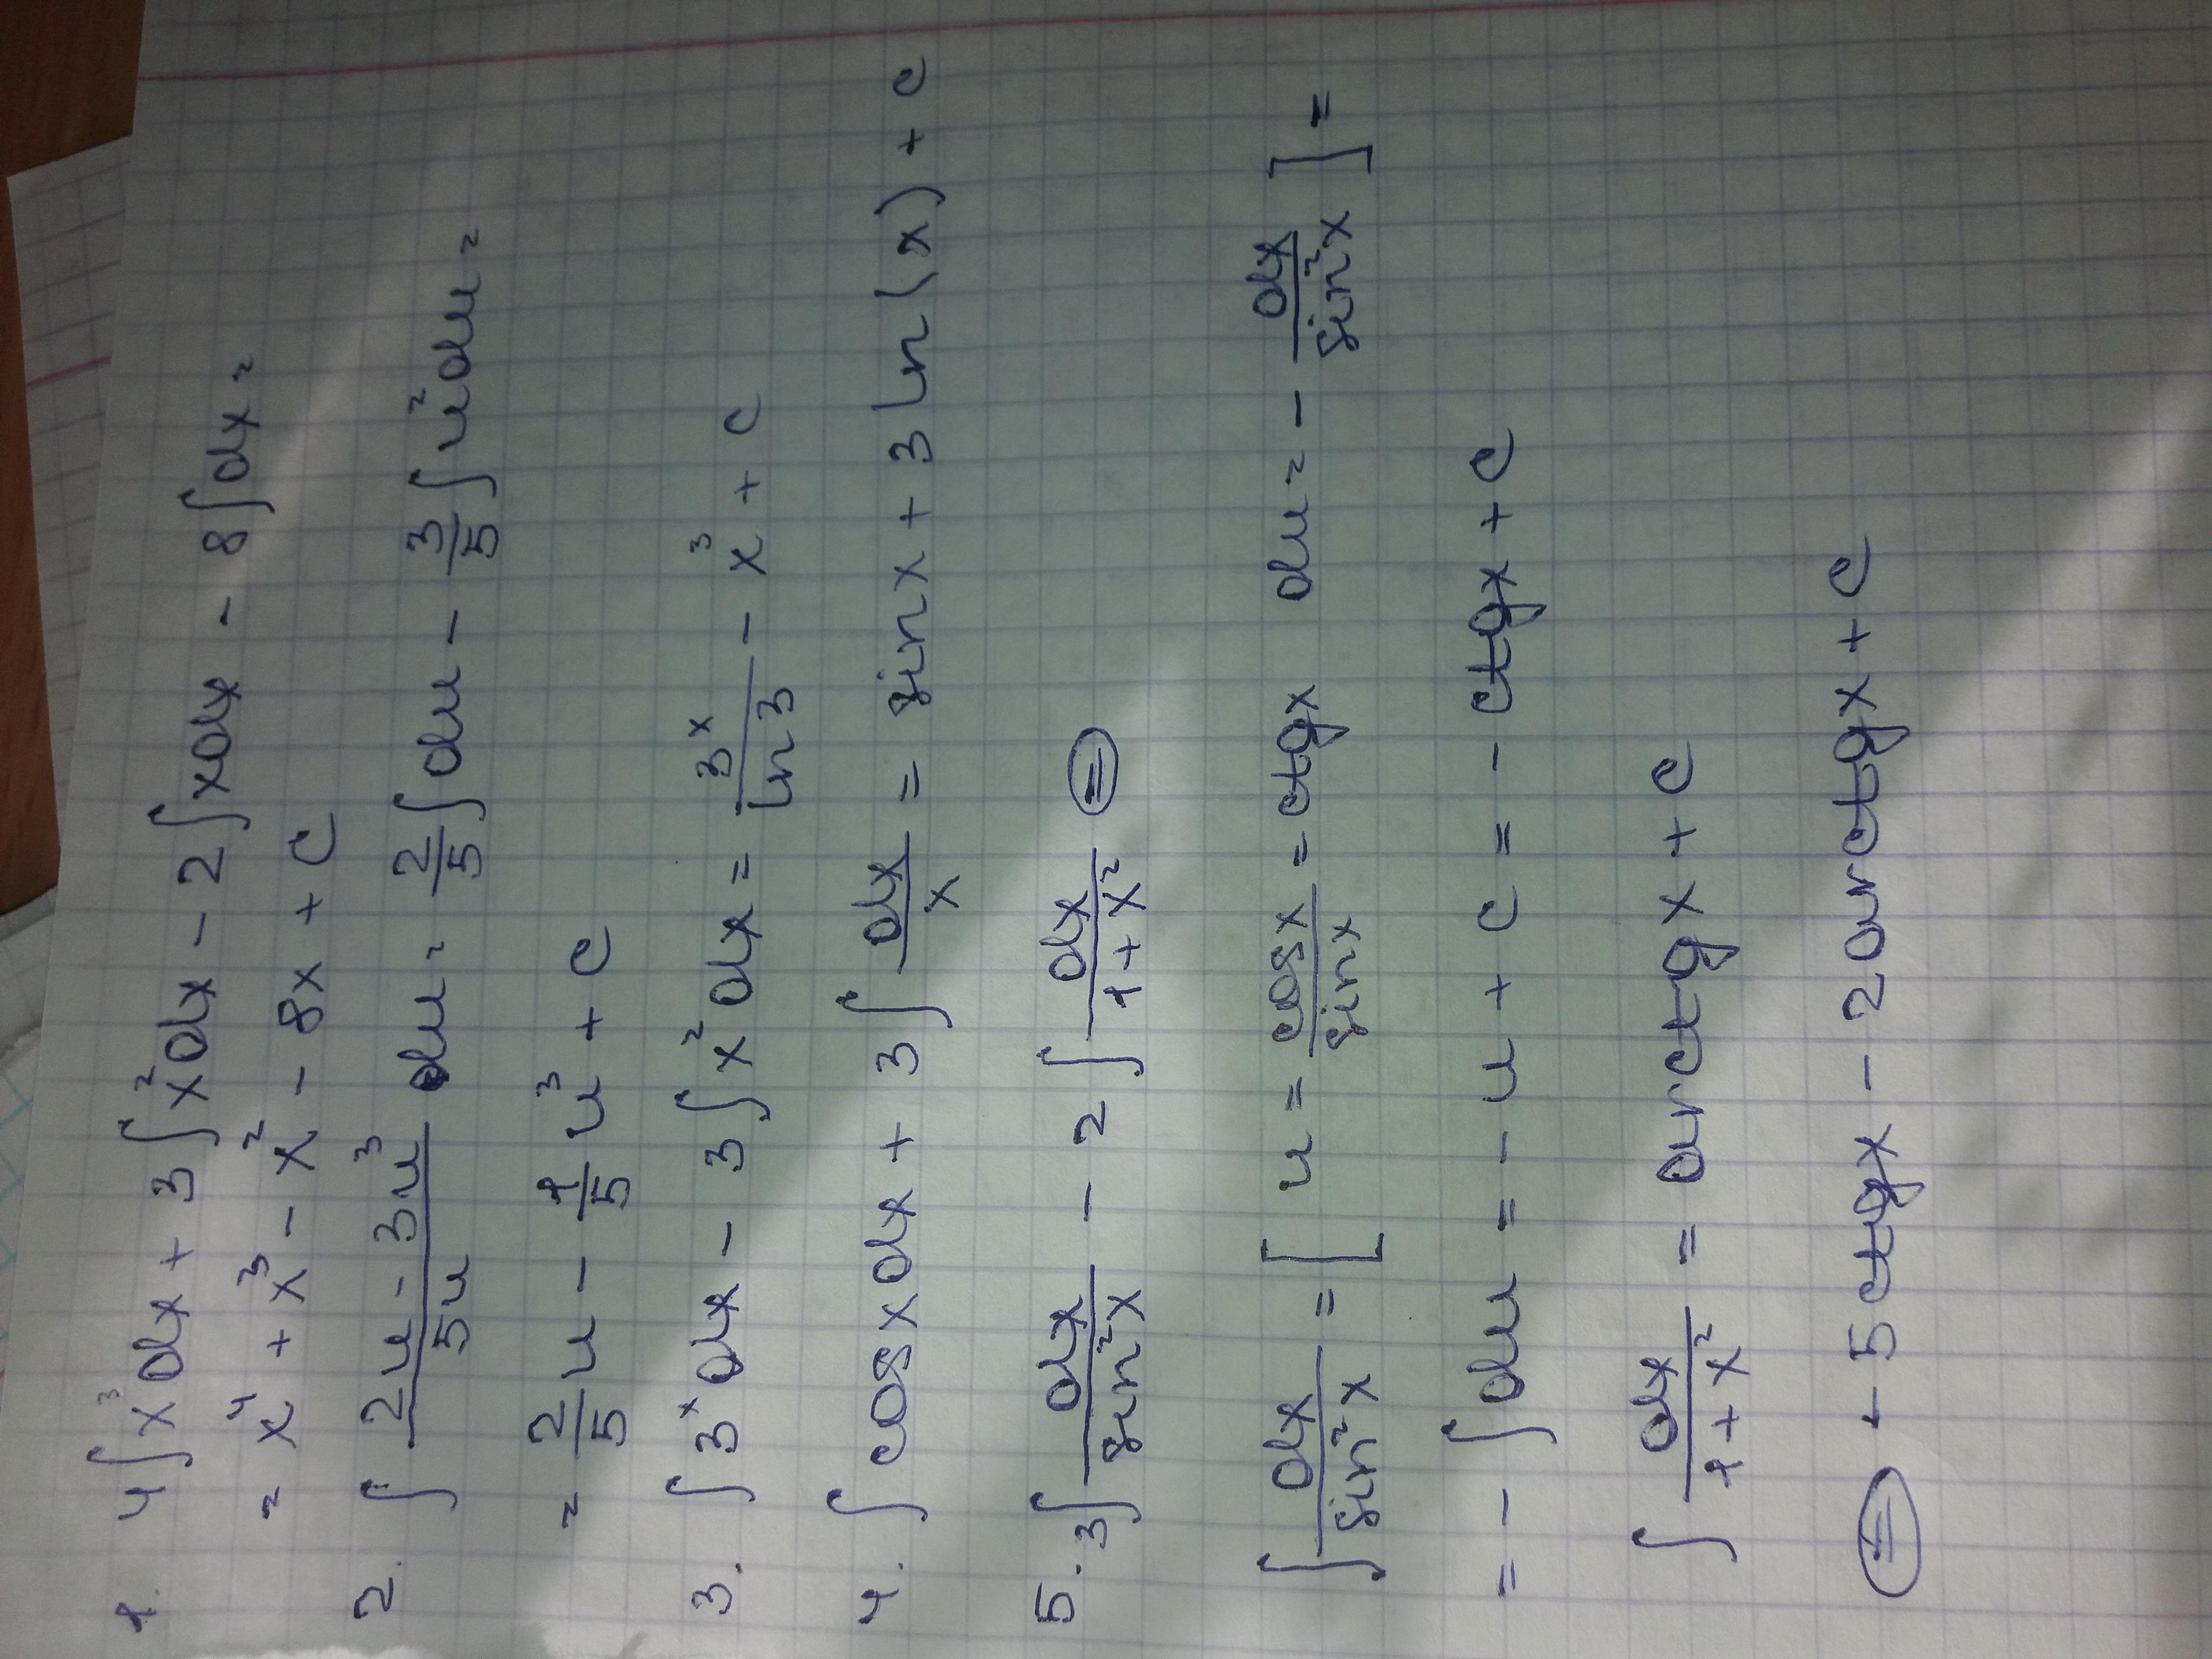 1. 4∫x³dx + 3∫x²dx - 2∫xdx - 8∫dx =
= x⁴ + x³ - x² - 8x + C
2. ∫ (2u - 3u³)/(5u) du = 2/5 ∫du - 3/5 ∫u²du =
= 2/5 u - 1/5 u³ + C
3. ∫3ˣdx - 3∫x²dx = 3ˣ/ln3 - x³ + C
4. ∫cosxdx + 3∫dx/x = sinx + 3ln(x) + C
5. 3∫dx/sin²x - 2∫dx/(1+x²) ⊜
∫dx/sin²x = [ u = cosx/sinx = ctgx du = - dx/sin²x ] =
= - ∫du = - u + C = - ctgx + C
∫dx/(1+x²) = arctgx + C
⊜ - 5ctgx - 2arctgx + C